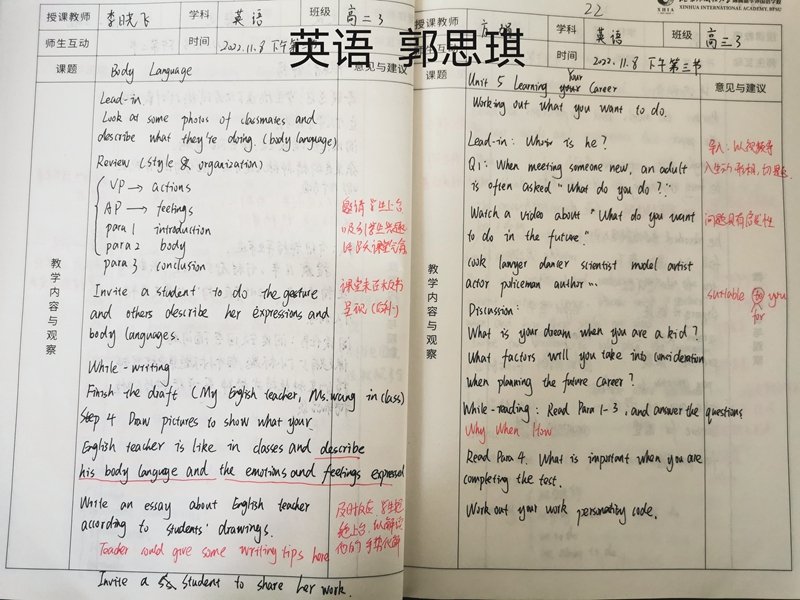 英语 郭思琪
授课教师 李晓飞 学科 英语 班级 高二3
师生互动 时间 2022.11.8 下午第
课题 Body Language 意见与建议
教学内容与观察
Lead-in
Look at some photos of classmates and
describe what they're doing. (body language)
Review (style & organization)
VP → actions
AP → feelings
para 1 introduction
para 2 body
para 3 conclusion
Invite a student to do the gesture
and others describe her expressions and
body languages.
While-writing
Finish the draft (My English teacher, Ms. wang in class)
Step 4 Draw pictures to show what your
English teacher is like in classes and describe
his body language and the emotions and feelings expressed
Write an essay about English teacher
according to students' drawings.
Teacher could give some writing tips here
Invite a student to share her work.
邀请学生上台
课堂未正板书
呈现
22
XINHUA INTERNATIONAL ACADEMY, BFSU
授课教师 学科 英语 班级 高三3
师生互动 时间 2022.11.8 下午第三节
课题 Unit 5 Learning your Your Career 意见与建议
教学内容与观察
Working out what you want to do.
Lead-in: Who is he?
Q1: When meeting someone new, an adult
is often asked "What do you do?"
Watch a video about "What do you want
to do in the future."
cook lawyer dancer scientist model artist
actor policeman author...
Discussion:
What is your dream when you are a kid?
What factors will you take into consideration
when planning the future career?
While-reading: Read Para 1-3, and answer the questions
Why When How
Read Para 4. What is important when you are
completing the test.
Work out your work personality code.
导入: 以视频导
入生动形象, 切题
问题具有启发性
suitable to you
for